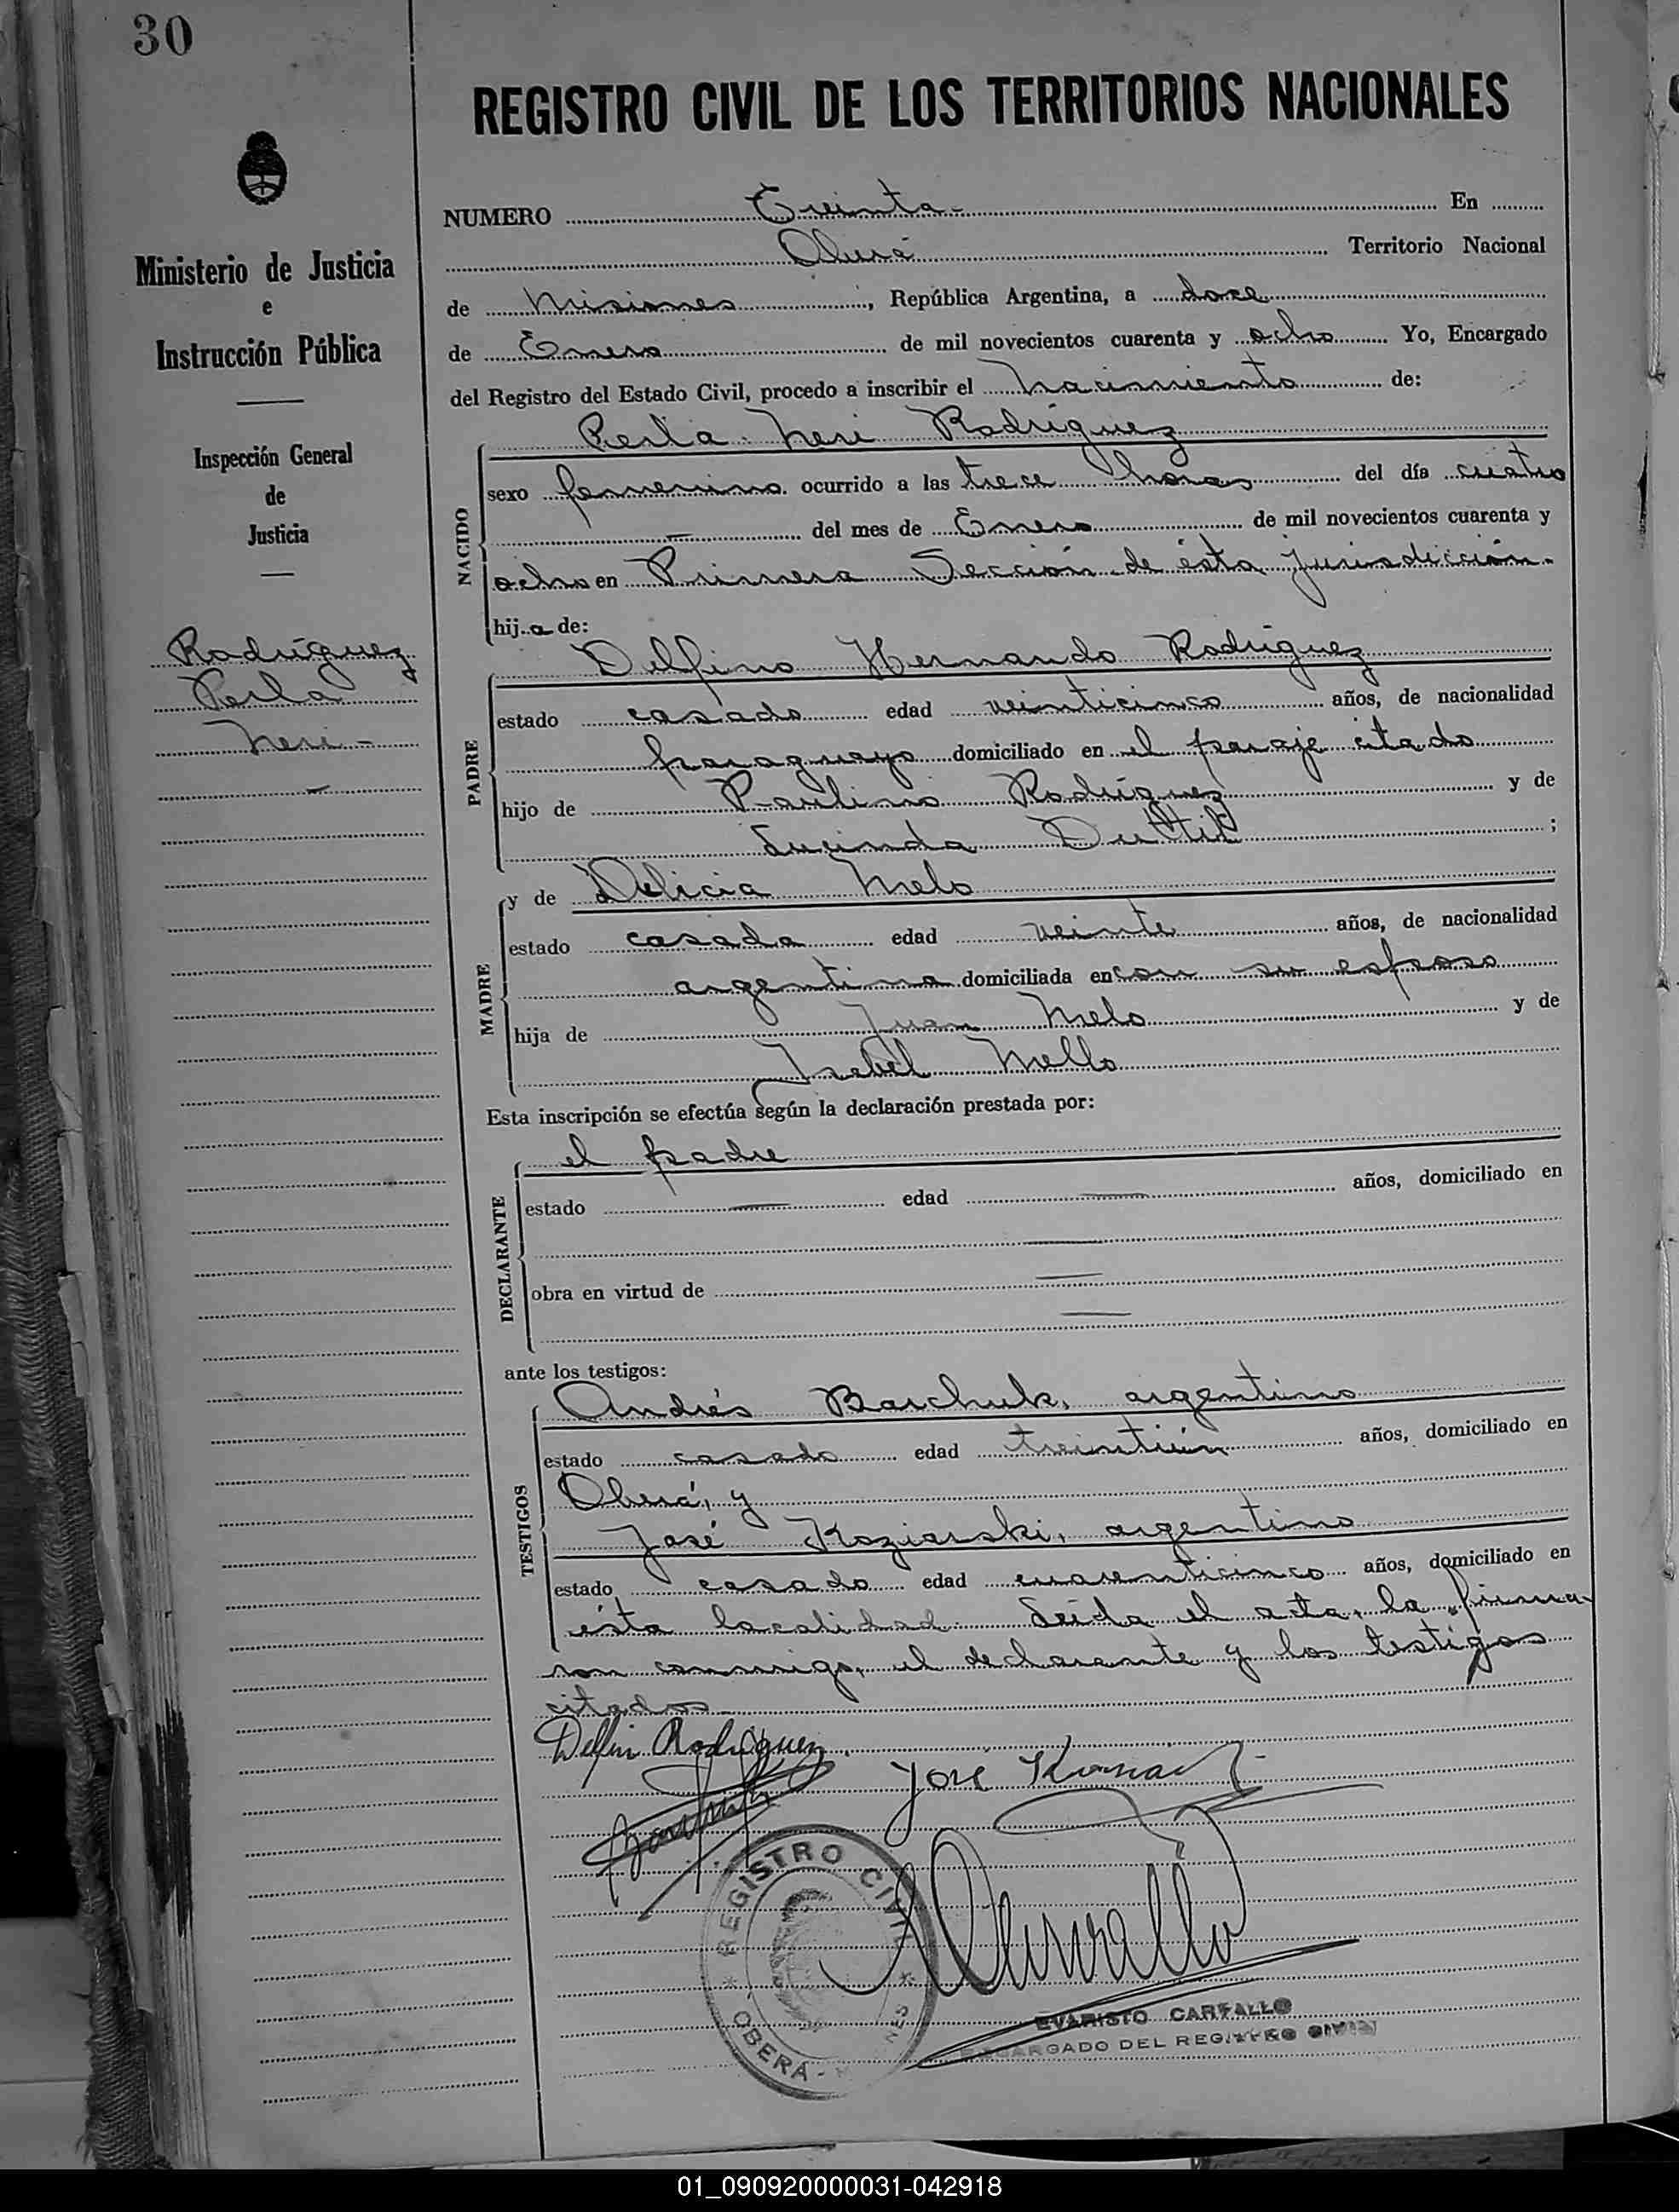 30
REGISTRO CIVIL DE LOS TERRITORIOS NACIONALES
Ministerio de Justicia
e
Instrucción Pública
Inspección General
de
Justicia
Rodríguez
Perla
Neri -
NUMERO Treinta - En
Oberá Territorio Nacional
de Misiones, República Argentina, a doce
de Enero de mil novecientos cuarenta y ocho Yo, Encargado
del Registro del Estado Civil, procedo a inscribir el nacimiento de:
NACIDO
Perla Neri Rodríguez
sexo femenino ocurrido a las trece horas del día cuatro
— del mes de Enero de mil novecientos cuarenta y
ocho en Primera Sección de ésta jurisdicción.
hija de:
PADRE
Delfino Hernando Rodríguez
estado casado edad veinticinco años, de nacionalidad
paraguayo domiciliado en el paraje citado
hijo de Paulino Rodríguez y de
Lucinda ;
MADRE
y de Delicia Melo
estado casada edad veinte años, de nacionalidad
argentina domiciliada en con su esposo
hija de Juan Melo y de
Isabel Mello
Esta inscripción se efectúa según la declaración prestada por:
DECLARANTE
el padre
estado — edad — años, domiciliado en
—
obra en virtud de —
—
ante los testigos:
TESTIGOS
Andrés Barchuk, argentino
estado casado edad treintiún años, domiciliado en
Oberá, y
José Koziarski, argentino
estado casado edad cuarenticinco años, domiciliado en
ésta localidad Leída el acta, la firma-
ron conmigo, el declarante y los testigos
citados
Delfin Rodriguez
José
REGISTRO CIVIL
OBERÁ -
EVARISTO CARFALLO
ENCARGADO DEL REGISTRO CIVIL
01_090920000031-042918